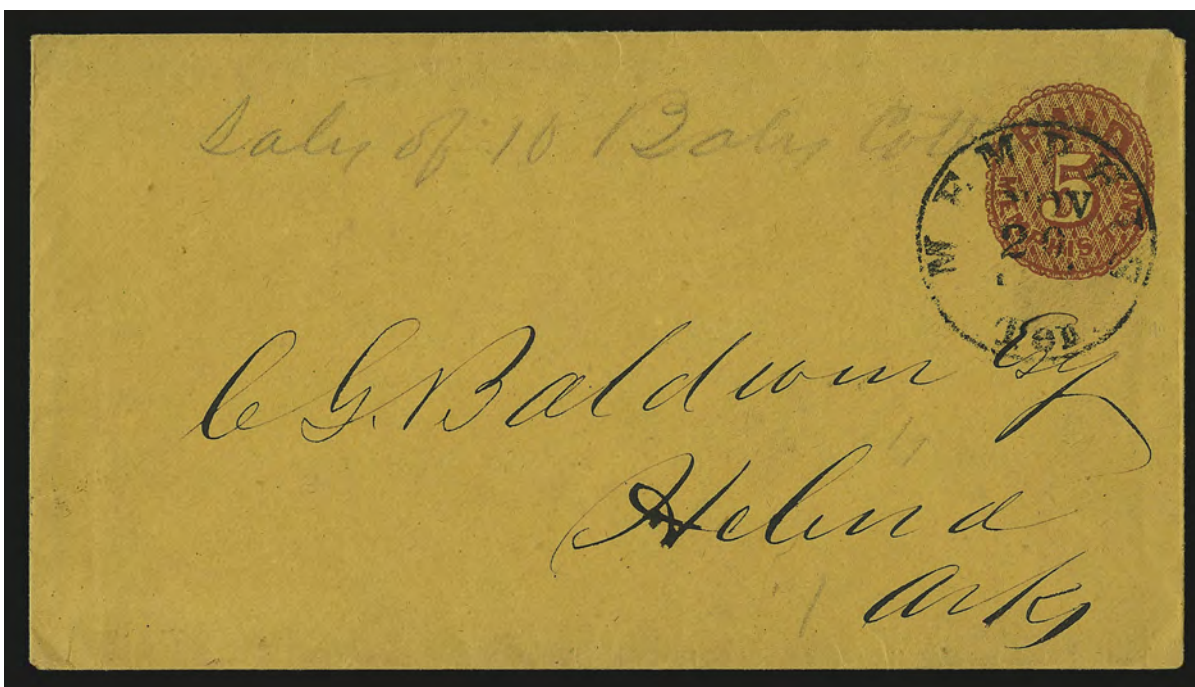 Sales of 10 Bales Cott
PAID
5
MEMPHIS TENN.
MEMPHIS
NOV
Ten.
C G. Baldwin Esq
Helena
Arks